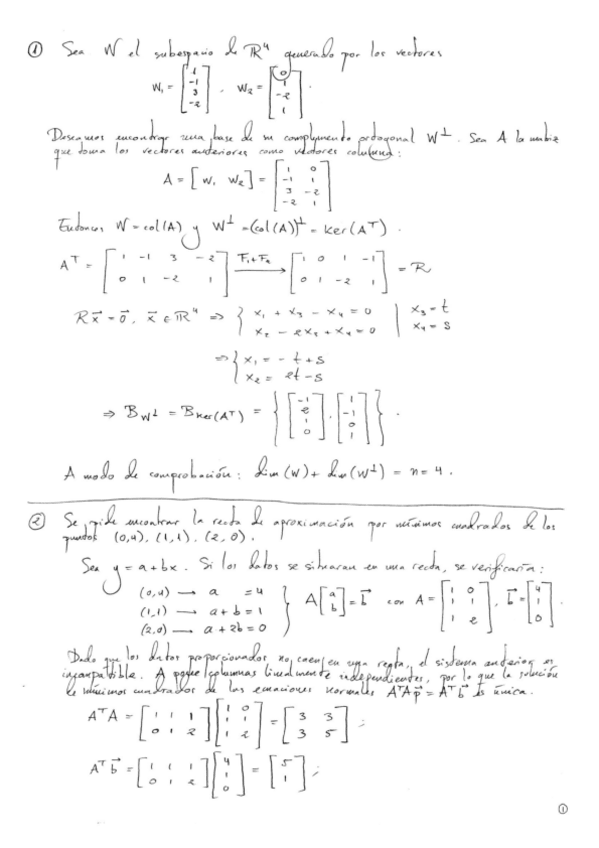 ① Sea W el subespacio de ℝ⁴ generado por los vectores
W₁ = [1; -1; 3; -2] , W₂ = [0; 1; -2; 1] .
Deseamos encontrar una base de su complemento ortogonal W⊥. Sea A la matriz
que toma los vectores anteriores como vectores columna:
A = [W₁ W₂] = [1 0; -1 1; 3 -2; -2 1]
Entonces W = col(A) y W⊥ = (col(A))⊥ = Ker(Aᵀ) .
Aᵀ = [1 -1 3 -2; 0 1 -2 1] F₁+F₂ → [1 0 1 -1; 0 1 -2 1] = R
Rx⃗ = 0⃗, x⃗ ∈ ℝ⁴ ⇒ { x₁ + x₃ - x₄ = 0 | x₃ = t
x₂ - 2x₃ + x₄ = 0 | x₄ = s
⇒ { x₁ = - t + s
x₂ = 2t - s
⇒ B_W⊥ = B_Ker(Aᵀ) = { [-1; 2; 1; 0] , [1; -1; 0; 1] } .
A modo de comprobación: dim(W) + dim(W⊥) = n = 4 .
② Se pide encontrar la recta de aproximación por mínimos cuadrados de los
puntos (0,4), (1,1), (2,0) .
Sea y = a + bx . Si los datos se situaran en una recta, se verificaría:
(0,4) → a = 4
(1,1) → a + b = 1 } A[a; b] = b⃗ con A = [1 0; 1 1; 1 2], b⃗ = [4; 1; 0] .
(2,0) → a + 2b = 0
Dado que los datos proporcionados no caen en una recta, el sistema anterior es
incompatible. A posee columnas linealmente independientes, por lo que la solución
de mínimos cuadrados de las ecuaciones normales AᵀAp⃗ = Aᵀb⃗ es única.
AᵀA = [1 1 1; 0 1 2] [1 0; 1 1; 1 2] = [3 3; 3 5] ;
Aᵀb⃗ = [1 1 1; 0 1 2] [4; 1; 0] = [5; 1] ;
①